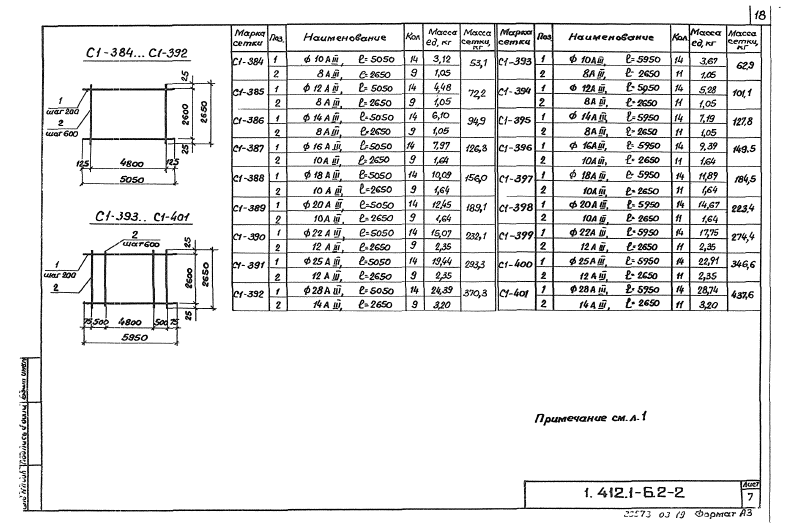 18
С1-384... С1-392
25
1
шаг 200
2
шаг 600
2600
2650
25
125 4800 125
5050
С1-393.. С1-401
2
шаг 600
25
1
шаг 200
2
2600
2650
75 500 4800 500 75
25
5950
Марка сетки Поз. Наименование Кол Масса ед, кг Масса сетки, кг
С1-384 1 ф 10 А III, ℓ=5050 14 3,12 53,1
2 8 А III, ℓ=2650 9 1,05
С1-385 1 ф 12 А III, ℓ=5050 14 4,48 72,2
2 8 А III, ℓ=2650 9 1,05
С1-386 1 ф 14 А III, ℓ=5050 14 6,10 94,9
2 8 А III, ℓ=2650 9 1,05
С1-387 1 ф 16 А III, ℓ=5050 14 7,97 126,3
2 10 А III, ℓ=2650 9 1,64
С1-388 1 ф 18 А III, ℓ=5050 14 10,09 156,0
2 10 А III, ℓ=2650 9 1,64
С1-389 1 ф 20 А III, ℓ=5050 14 12,45 189,1
2 10 А III, ℓ=2650 9 1,64
С1-390 1 ф 22 А III, ℓ=5050 14 15,07 232,1
2 12 А III, ℓ=2650 9 2,35
С1-391 1 ф 25 А III, ℓ=5050 14 19,44 293,3
2 12 А III, ℓ=2650 9 2,35
С1-392 1 ф 28 А III, ℓ=5050 14 24,39 370,3
2 14 А III, ℓ=2650 9 3,20
Марка сетки Поз. Наименование Кол Масса ед, кг Масса сетки, кг
С1-393 1 ф 10 А III, ℓ=5950 14 3,67 62,9
2 8 А III, ℓ=2650 11 1,05
С1-394 1 ф 12 А III, ℓ=5950 14 5,28 101,1
2 8 А III, ℓ=2650 11 1,05
С1-395 1 ф 14 А III, ℓ=5950 14 7,19 127,8
2 8 А III, ℓ=2650 11 1,05
С1-396 1 ф 16 А III, ℓ=5950 14 9,39 149,5
2 10 А III, ℓ=2650 11 1,64
С1-397 1 ф 18 А III, ℓ=5950 14 11,89 184,5
2 10 А III, ℓ=2650 11 1,64
С1-398 1 ф 20 А III, ℓ=5950 14 14,67 223,4
2 10 А III, ℓ=2650 11 1,64
С1-399 1 ф 22 А III, ℓ=5950 14 17,75 274,4
2 12 А III, ℓ=2650 11 2,35
С1-400 1 ф 25 А III, ℓ=5950 14 22,91 346,6
2 12 А III, ℓ=2650 11 2,35
С1-401 1 ф 28 А III, ℓ=5950 14 28,74 437,6
2 14 А III, ℓ=2650 11 3,20
Примечание см. л. 1
1. 412.1-6.2-2
Лист
7
03 19 Формат А3